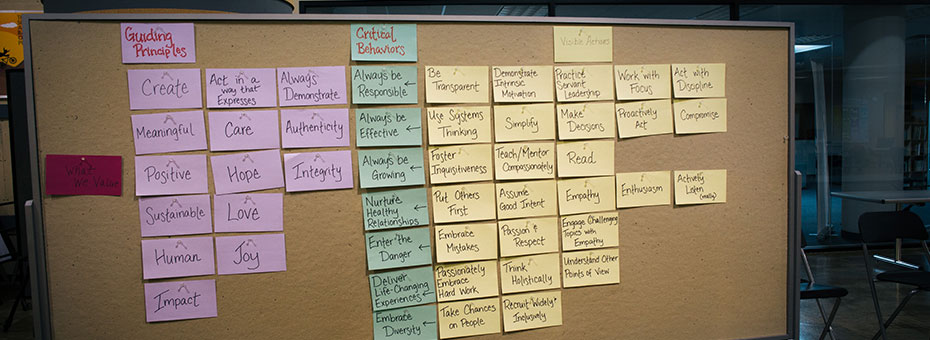 Guiding
Principles
Critical
Behaviors
Visible Actions
What
We Value
Create
Act in a
way that
Expresses
Always
Demonstrate
Meaningful
Care
Authenticity
Positive
Hope
Integrity
Sustainable
Love
Human
Joy
Impact
Always be
Responsible
Be
Transparent
Demonstrate
Intrinsic
Motivation
Practice
Servant
Leadership
Work with
Focus
Act with
Discipline
Always be
Effective
Use Systems
Thinking
Simplify
Make
Decisions
Proactively
Act
Compromise
Always be
Growing
Foster
Inquisitiveness
Teach/Mentor
Compassionately
Read
Nurture
Healthy
Relationships
Put Others
First
Assume
Good Intent
Empathy
Enthusiasm
Actively
Listen
(really)
Enter the
Danger
Embrace
Mistakes
Passion &
Respect
Engage Challenging
Topics with
Empathy
Deliver
Life-Changing
Experiences
Passionately
Embrace
Hard Work
Think
Holistically
Understand Other
Points of View
Embrace
Diversity
Take Chances
on People
Recruit Widely &
Inclusively